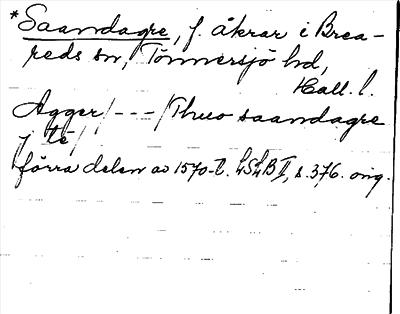 *Saandagre, f. åkrar i Brea-
reds sn, Tönnersjö hd,
Hall. l.
Agger/---/Thuo saandagre
y té/
förra delen av 1570-t. LSLB II, s. 376. orig.